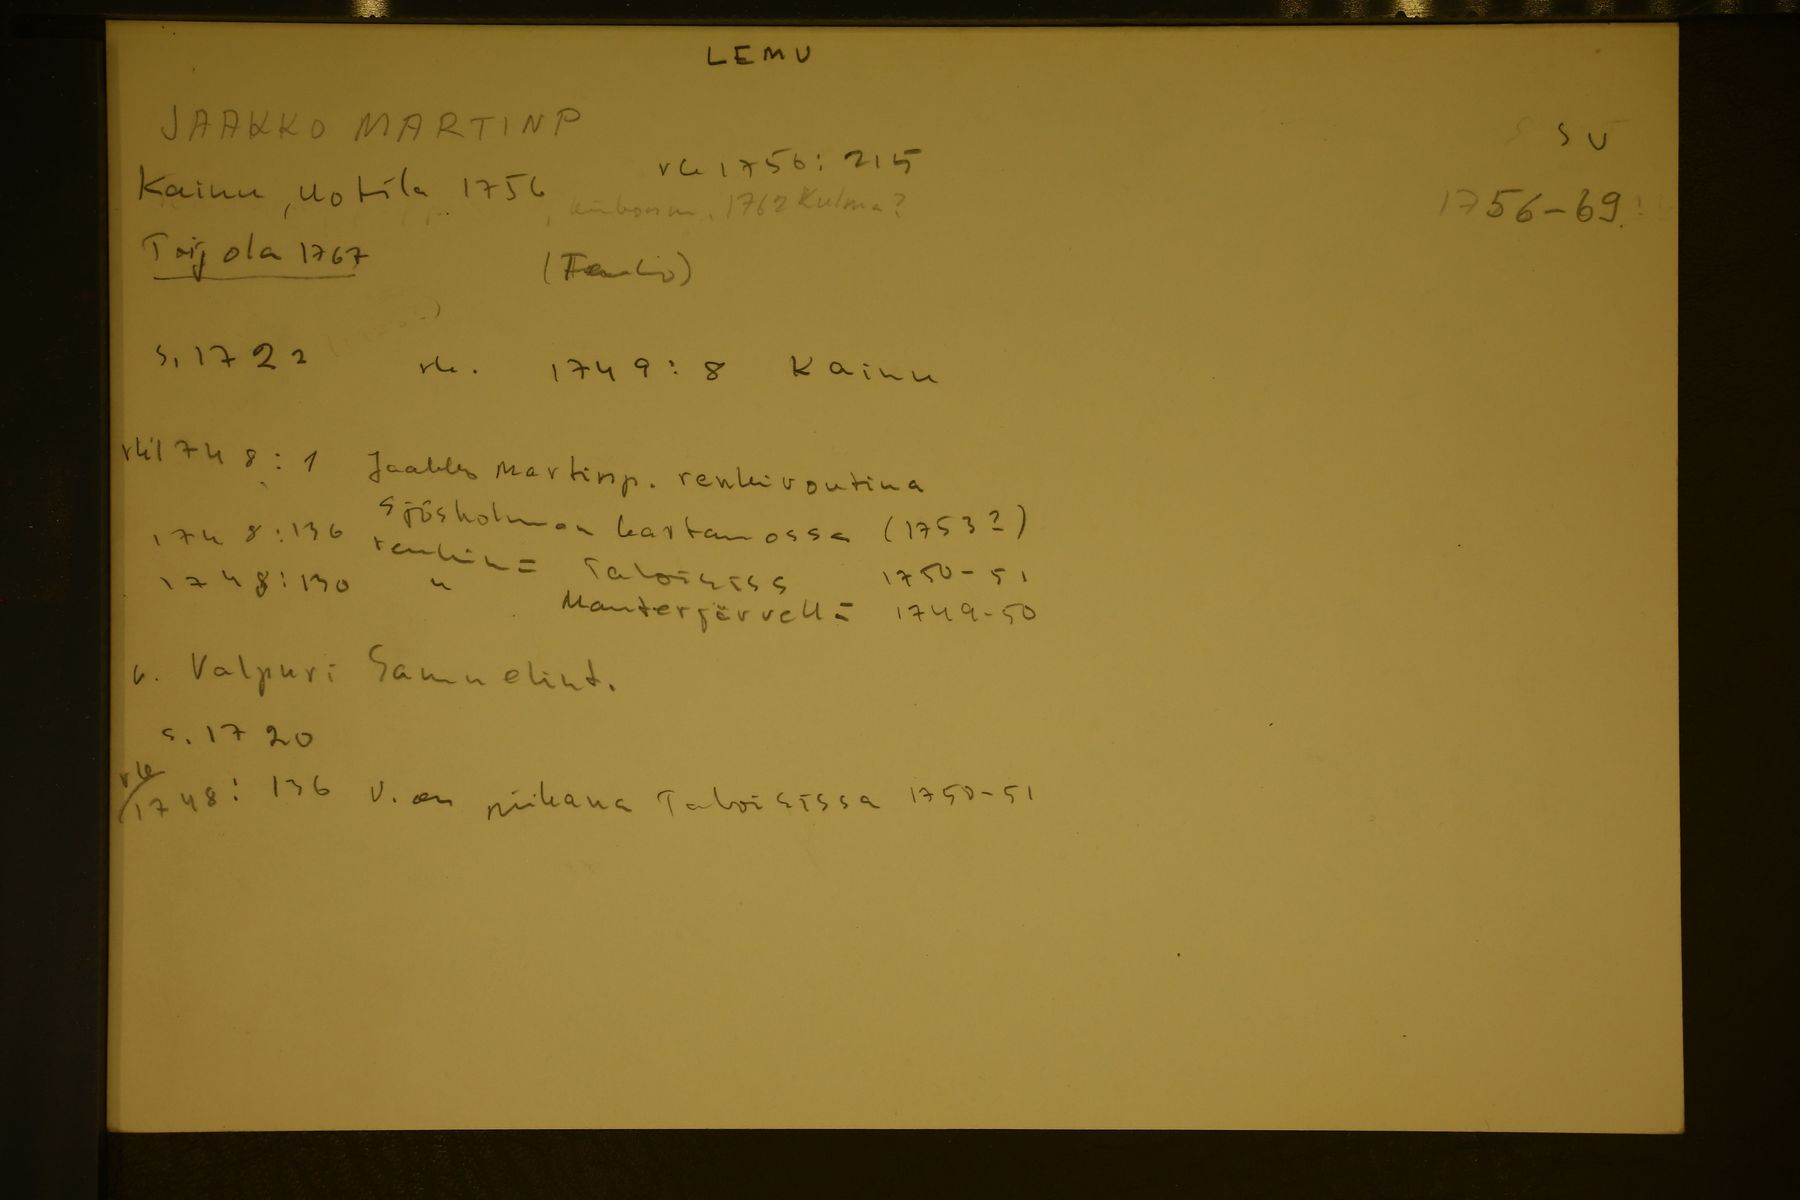 LEMU
JAAKKO MARTINP
SU
Kainu, Uotila 1756 rk 1756: 215
1762 Kulma?
1756-69
Toijola 1767
s. 1722 rk. 1749: 8 Kainu
rk 1748: 1 Jaakko Martinp. renkivoutina
Sjösholman kartanossa (1753?)
1748:136 renkinä Taloisissa 1750-51
1748:130 " Manterjärvellä 1749-50
v. Valpuri Samuelint.
s. 1720
rk 1748: 136 V. on piikana Taloisissa 1750-51